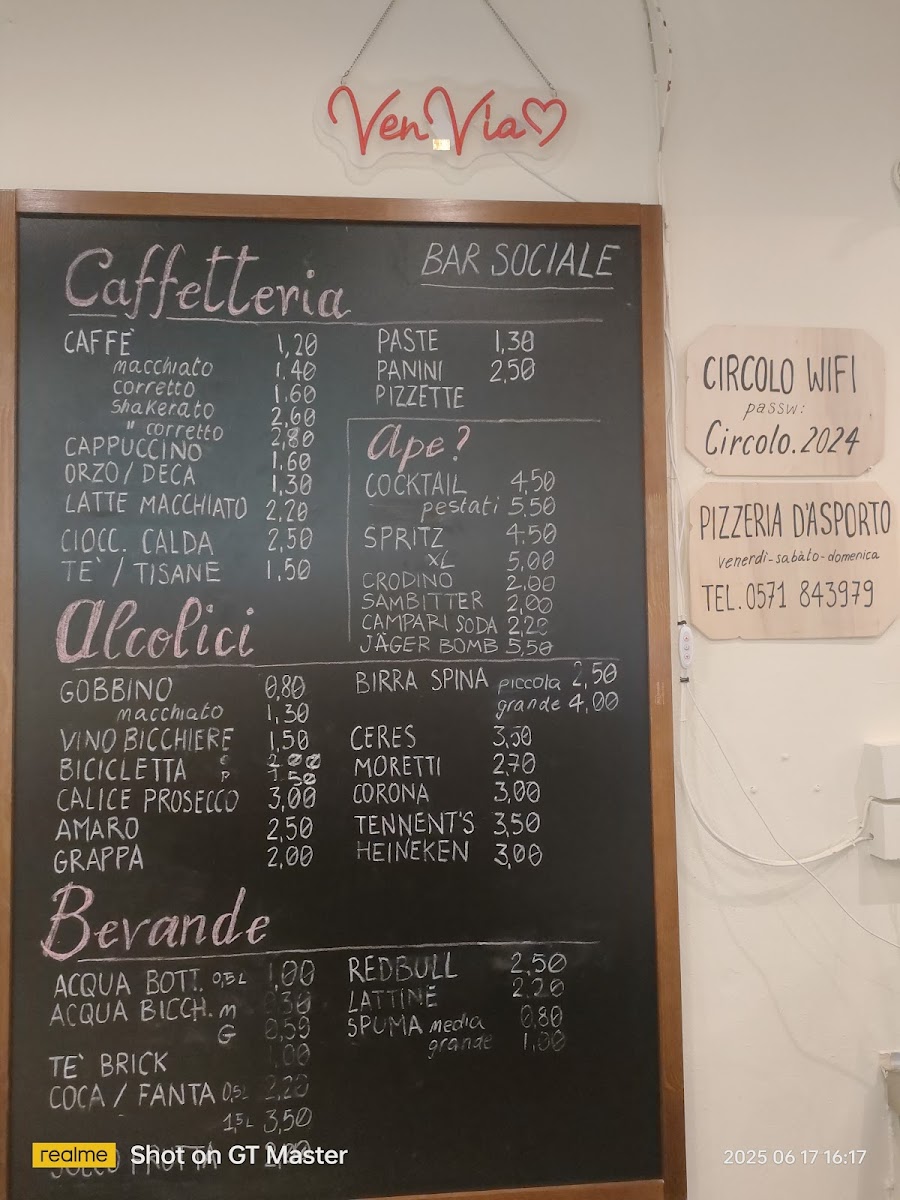 Ven Via
BAR SOCIALE
Caffetteria
CAFFÈ 1,20
macchiato 1.40
corretto 1.60
shakerato 2,60
" corretto 2,80
CAPPUCCINO 1.60
ORZO / DECA 1,30
LATTE MACCHIATO 2,20
CIOCC. CALDA 2,50
TE' / TISANE 1,50
PASTE 1,30
PANINI 2,50
PIZZETTE
Ape?
COCKTAIL 4,50
pestati 5,50
SPRITZ 4.50
XL 5,00
CRODINO 2,00
SAMBITTER 2,00
CAMPARI SODA 2,20
JÄGER BOMB 5,50
Alcolici
GOBBINO 0,80
macchiato 1,30
VINO BICCHIERE 1,50
BICICLETTA G 2,00
P 1,50
CALICE PROSECCO 3,00
AMARO 2,50
GRAPPA 2,00
BIRRA SPINA piccola 2,50
grande 4,00
CERES 3,50
MORETTI 2,70
CORONA 3,00
TENNENT'S 3,50
HEINEKEN 3,00
Bevande
ACQUA BOTT. 0,5L 1,00
ACQUA BICCH. M 0,30
G
TE' BRICK 1,00
COCA / FANTA 0,5L 2,20
1,5L 3,50
SUCCO FRUTTA
REDBULL 2.50
LATTINE 2.20
SPUMA media 0,80
grande 1,00
CIRCOLO WIFI
passw:
Circolo.2024
PIZZERIA D'ASPORTO
venerdì-sabàto-domenica
TEL. 0571 843979
realme Shot on GT Master
2025 06 17 16:17